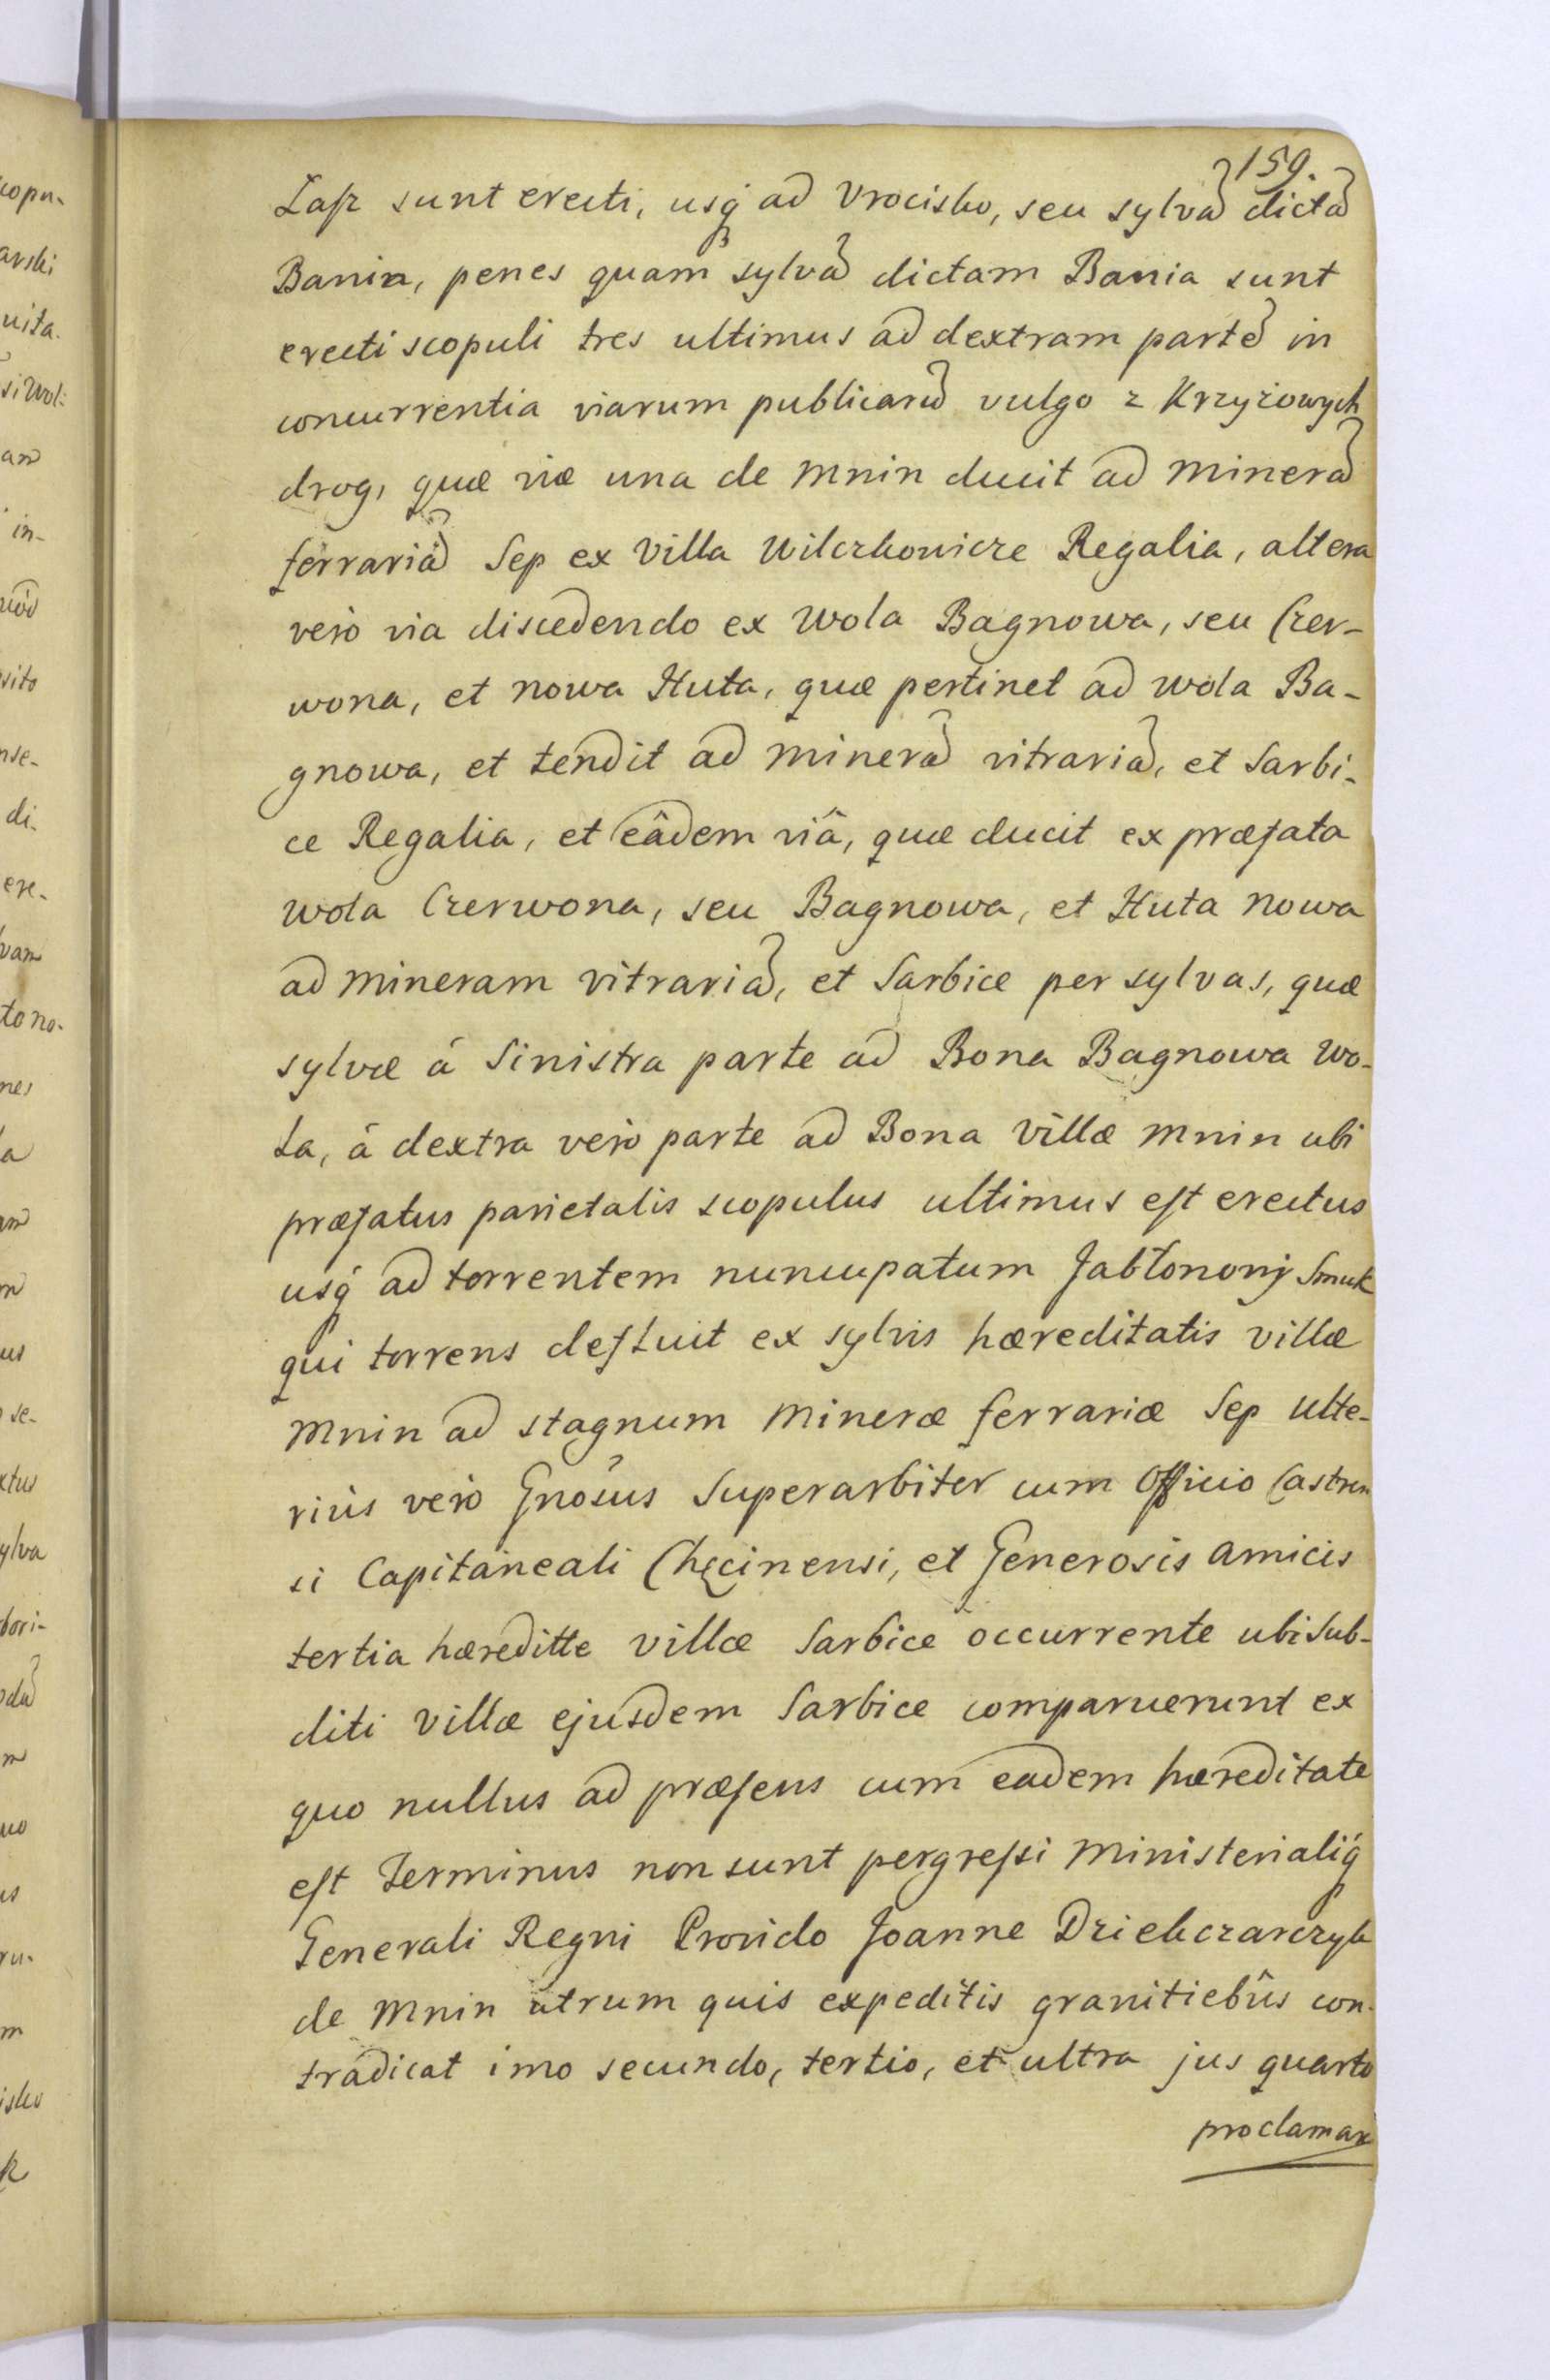 159.
Las sunt erecti, usq́ ad Vrocisko, seu sylvã dictã
Bania, penes quam sylvã dictam Bania sunt
erecti scopuli tres ultimus ad dextram partẽ in
concurrentia viarum publicarũ vulgo z Krzyżowych
drog, quæ viæ una de Mnin ducit ad minerã
ferrariã Sep ex Villa Wilczkowicze Regalia, altera
verò via discedendo ex Wola Bagnowa, seu Czer-
wona, et nowa Huta, quæ pertinet ad Wola Ba-
gnowa, et tendit ad minerã vitrariã, et Sarbi-
ce Regalia, et eâdem viâ, quæ ducit ex præfata
Wola Czerwona, seu Bagnowa, et Huta nowa
ad mineram vitrariã, et Sarbice per sylvas, quæ
sylvæ á Sinistra parte ad Bona Bagnowa Wo-
la, á dextra verò parte ad Bona Villæ Mnin ubi
præfatus parietalis scopulus ultimus est erectus
usq́ ad torrentem nuncupatum Jabłonowy Smuk
qui torrens defluit ex sylvis hæreditatis villæ
Mnin ad stagnum Mineræ ferrariæ Sep Ulte-
riùs verò Gnosus Superarbiter cum Officio Castren
si Capitaneali Chęcinensi, et Generosis Amicis
tertia hæreditte villæ Sarbice occurrente ubi Sub-
diti Villæ ejusdem Sarbice comparuerunt ex
quo nullus ad præsens cum eadem hæreditate
est Terminus non sunt pergressi Ministerialiq́
Generali Regni Provido Joanne Dziekczarczyk
de Mnin utrum quis expeditis granitiebûs con-
tradicat imo secundo, tertio, et ultra jus quarto
proclamari